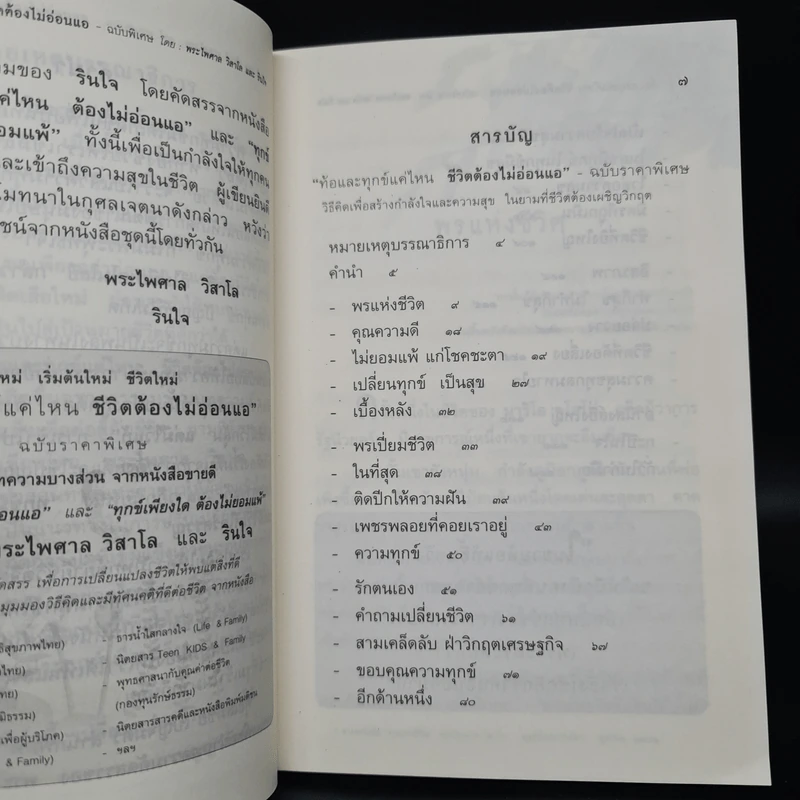 ต้องไม่อ่อนแอ – ฉบับพิเศษ โดย : พระไพศาล วิสาโล และ รินใจ
ของ รินใจ โดยคัดสรรจากหนังสือ
แค่ไหน ต้องไม่อ่อนแอ” และ “ทุกข์
ยอมแพ้” ทั้งนี้เพื่อเป็นกำลังใจให้ทุกคน
และเข้าถึงความสุขในชีวิต ผู้เขียนยินดี
โมทนาในกุศลเจตนาดังกล่าว หวังว่า
ชน์จากหนังสือชุดนี้โดยทั่วกัน
พระไพศาล วิสาโล
รินใจ
ใหม่ เริ่มต้นใหม่ ชีวิตใหม่
แค่ไหน ชีวิตต้องไม่อ่อนแอ”
ฉบับราคาพิเศษ
ทความบางส่วน จากหนังสือขายดี
อ่อนแอ” และ “ทุกข์เพียงใด ต้องไม่ยอมแพ้”
พระไพศาล วิสาโล และ รินใจ
ดสรร เพื่อการเปลี่ยนแปลงชีวิตให้พบแต่สิ่งที่ดี
มุมมองวิธีคิดและมีทัศนคติที่ดีต่อชีวิต จากหนังสือ
ธิสุขภาพไทย) - ธารน้ำใสกลางใจ (Life & Family)
ไทย) - นิตยสาร Teen KIDS & Family
ทย) - พุทธศาสนากับคุณค่าต่อชีวิต
มิธรรม) (กองทุนรักษ์ธรรม)
เพื่อผู้บริโภค) - นิตยสารสารคดีและหนังสือพิมพ์มติชน
& Family) - ฯลฯ
๗
สารบัญ
“ท้อและทุกข์แค่ไหน ชีวิตต้องไม่อ่อนแอ” - ฉบับราคาพิเศษ
วิธีคิดเพื่อสร้างกำลังใจและความสุข ในยามที่ชีวิตต้องเผชิญวิกฤต
หมายเหตุบรรณาธิการ ๔
คำนำ ๕
- พรแห่งชีวิต ๙
- คุณความดี ๑๘
- ไม่ยอมแพ้ แก่โชคชะตา ๑๙
- เปลี่ยนทุกข์ เป็นสุข ๒๗
- เบื้องหลัง ๓๒
- พรเปี่ยมชีวิต ๓๓
- ในที่สุด ๓๘
- ติดปีกให้ความฝัน ๓๙
- เพชรพลอยที่คอยเราอยู่ ๔๓
- ความทุกข์ ๕๐
- รักตนเอง ๕๑
- คำถามเปลี่ยนชีวิต ๖๑
- สามเคล็ดลับ ฝ่าวิกฤตเศรษฐกิจ ๖๗
- ขอบคุณความทุกข์ ๗๑
- อีกด้านหนึ่ง ๘๐